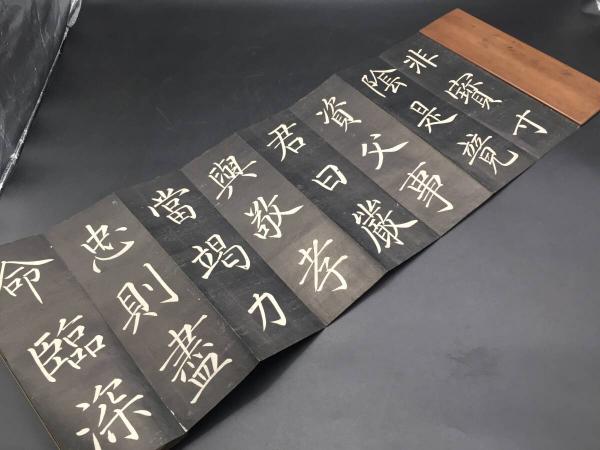 非寶寸
陰是竟
資父事
君曰嚴
與敬孝
當竭力
忠則盡
命臨深